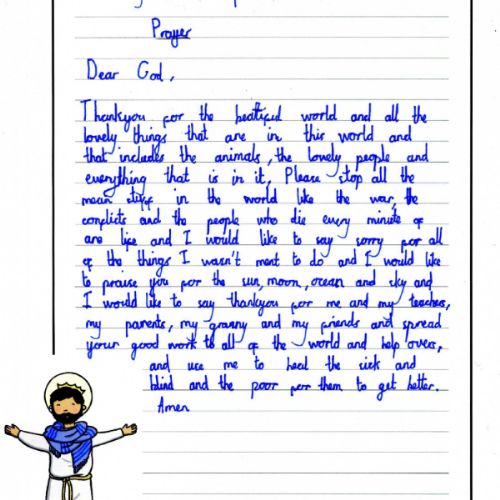 Prayer
Dear God,
Thankyou for the beatiful world and all the
lovely things that are in this world and
that includes the animals, the lovely people and
everything that is in it, Please stop all the
mean stuff in the world like the war, the
conflicts and the people who die every minute of
are life and I would like to say sorry for all
of the things I wasn't ment to do and I would like
to praise you for the sun, moon, ocean and sky and
I would like to say thankyou for me and my teachers,
my parents, my granny and my friends and spread
your good work to all of the world and help overs,
and use me to heal the sick and
blind and the poor for them to get better.
Amen